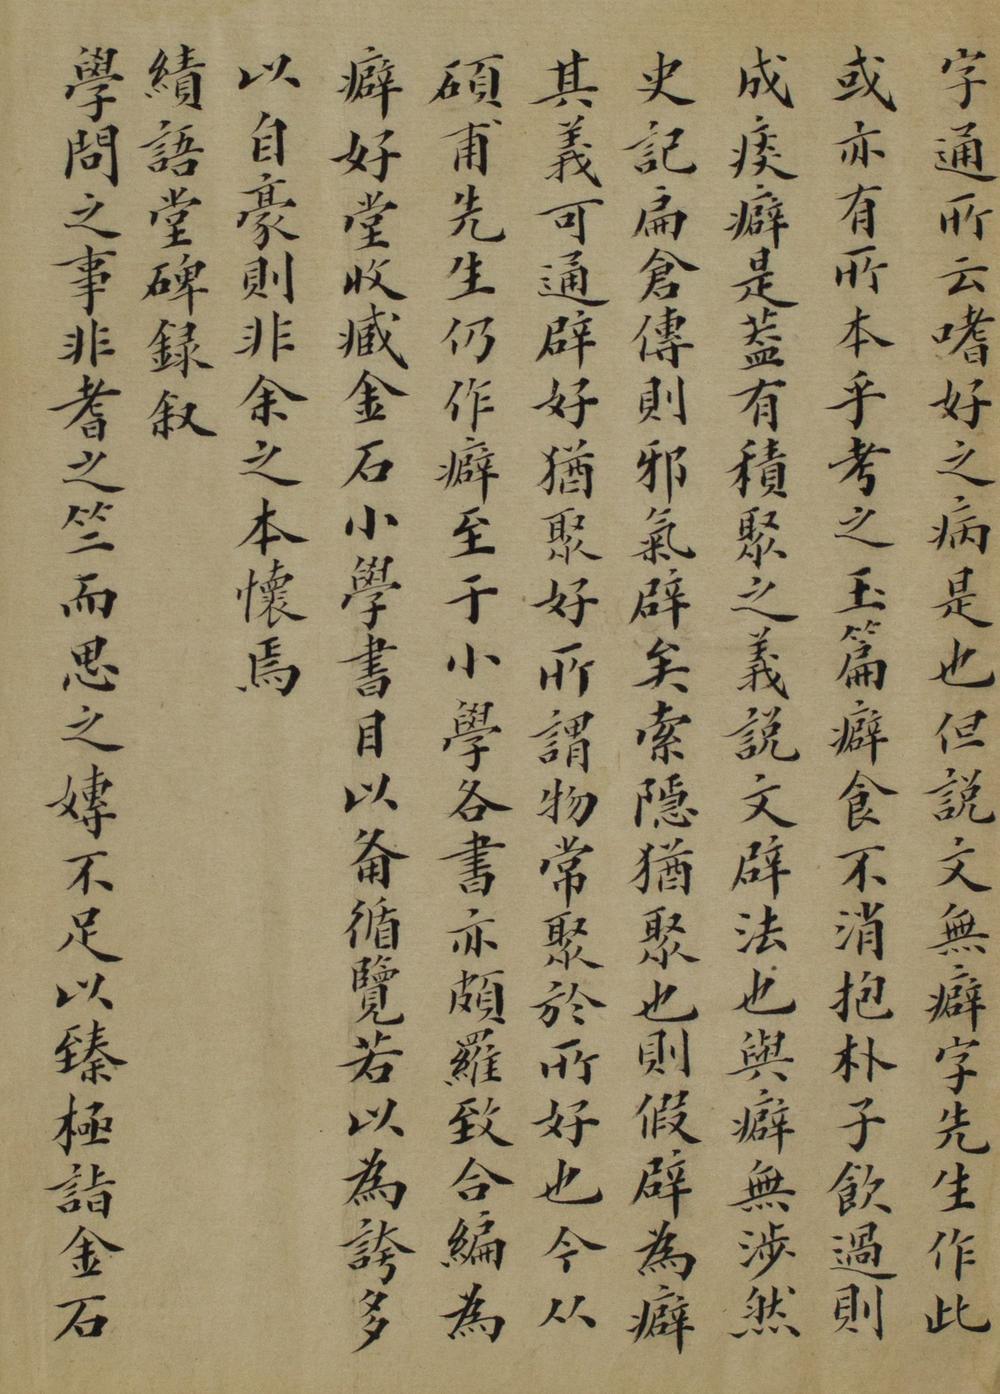 字通所云嗜好之病是也但説文無癖字先生作此
或亦有所本乎考之玉篇癖食不消抱朴子飲過則
成痰癖是葢有積聚之義説文辟法也與癖無涉然
史記扁倉傳則邪氣辟矣索隱猶聚也則假辟為癖
其義可通辟好猶聚好所謂物常聚於所好也今从
碩甫先生仍作癖至于小學各書亦頗羅致合編為
癖好堂收臧金石小學書目以葡循覽若以為誇多
以自豪則非余之本懷焉
績語堂碑録叙
學問之事非耆之竺而思之嫥不足以臻極詣金石